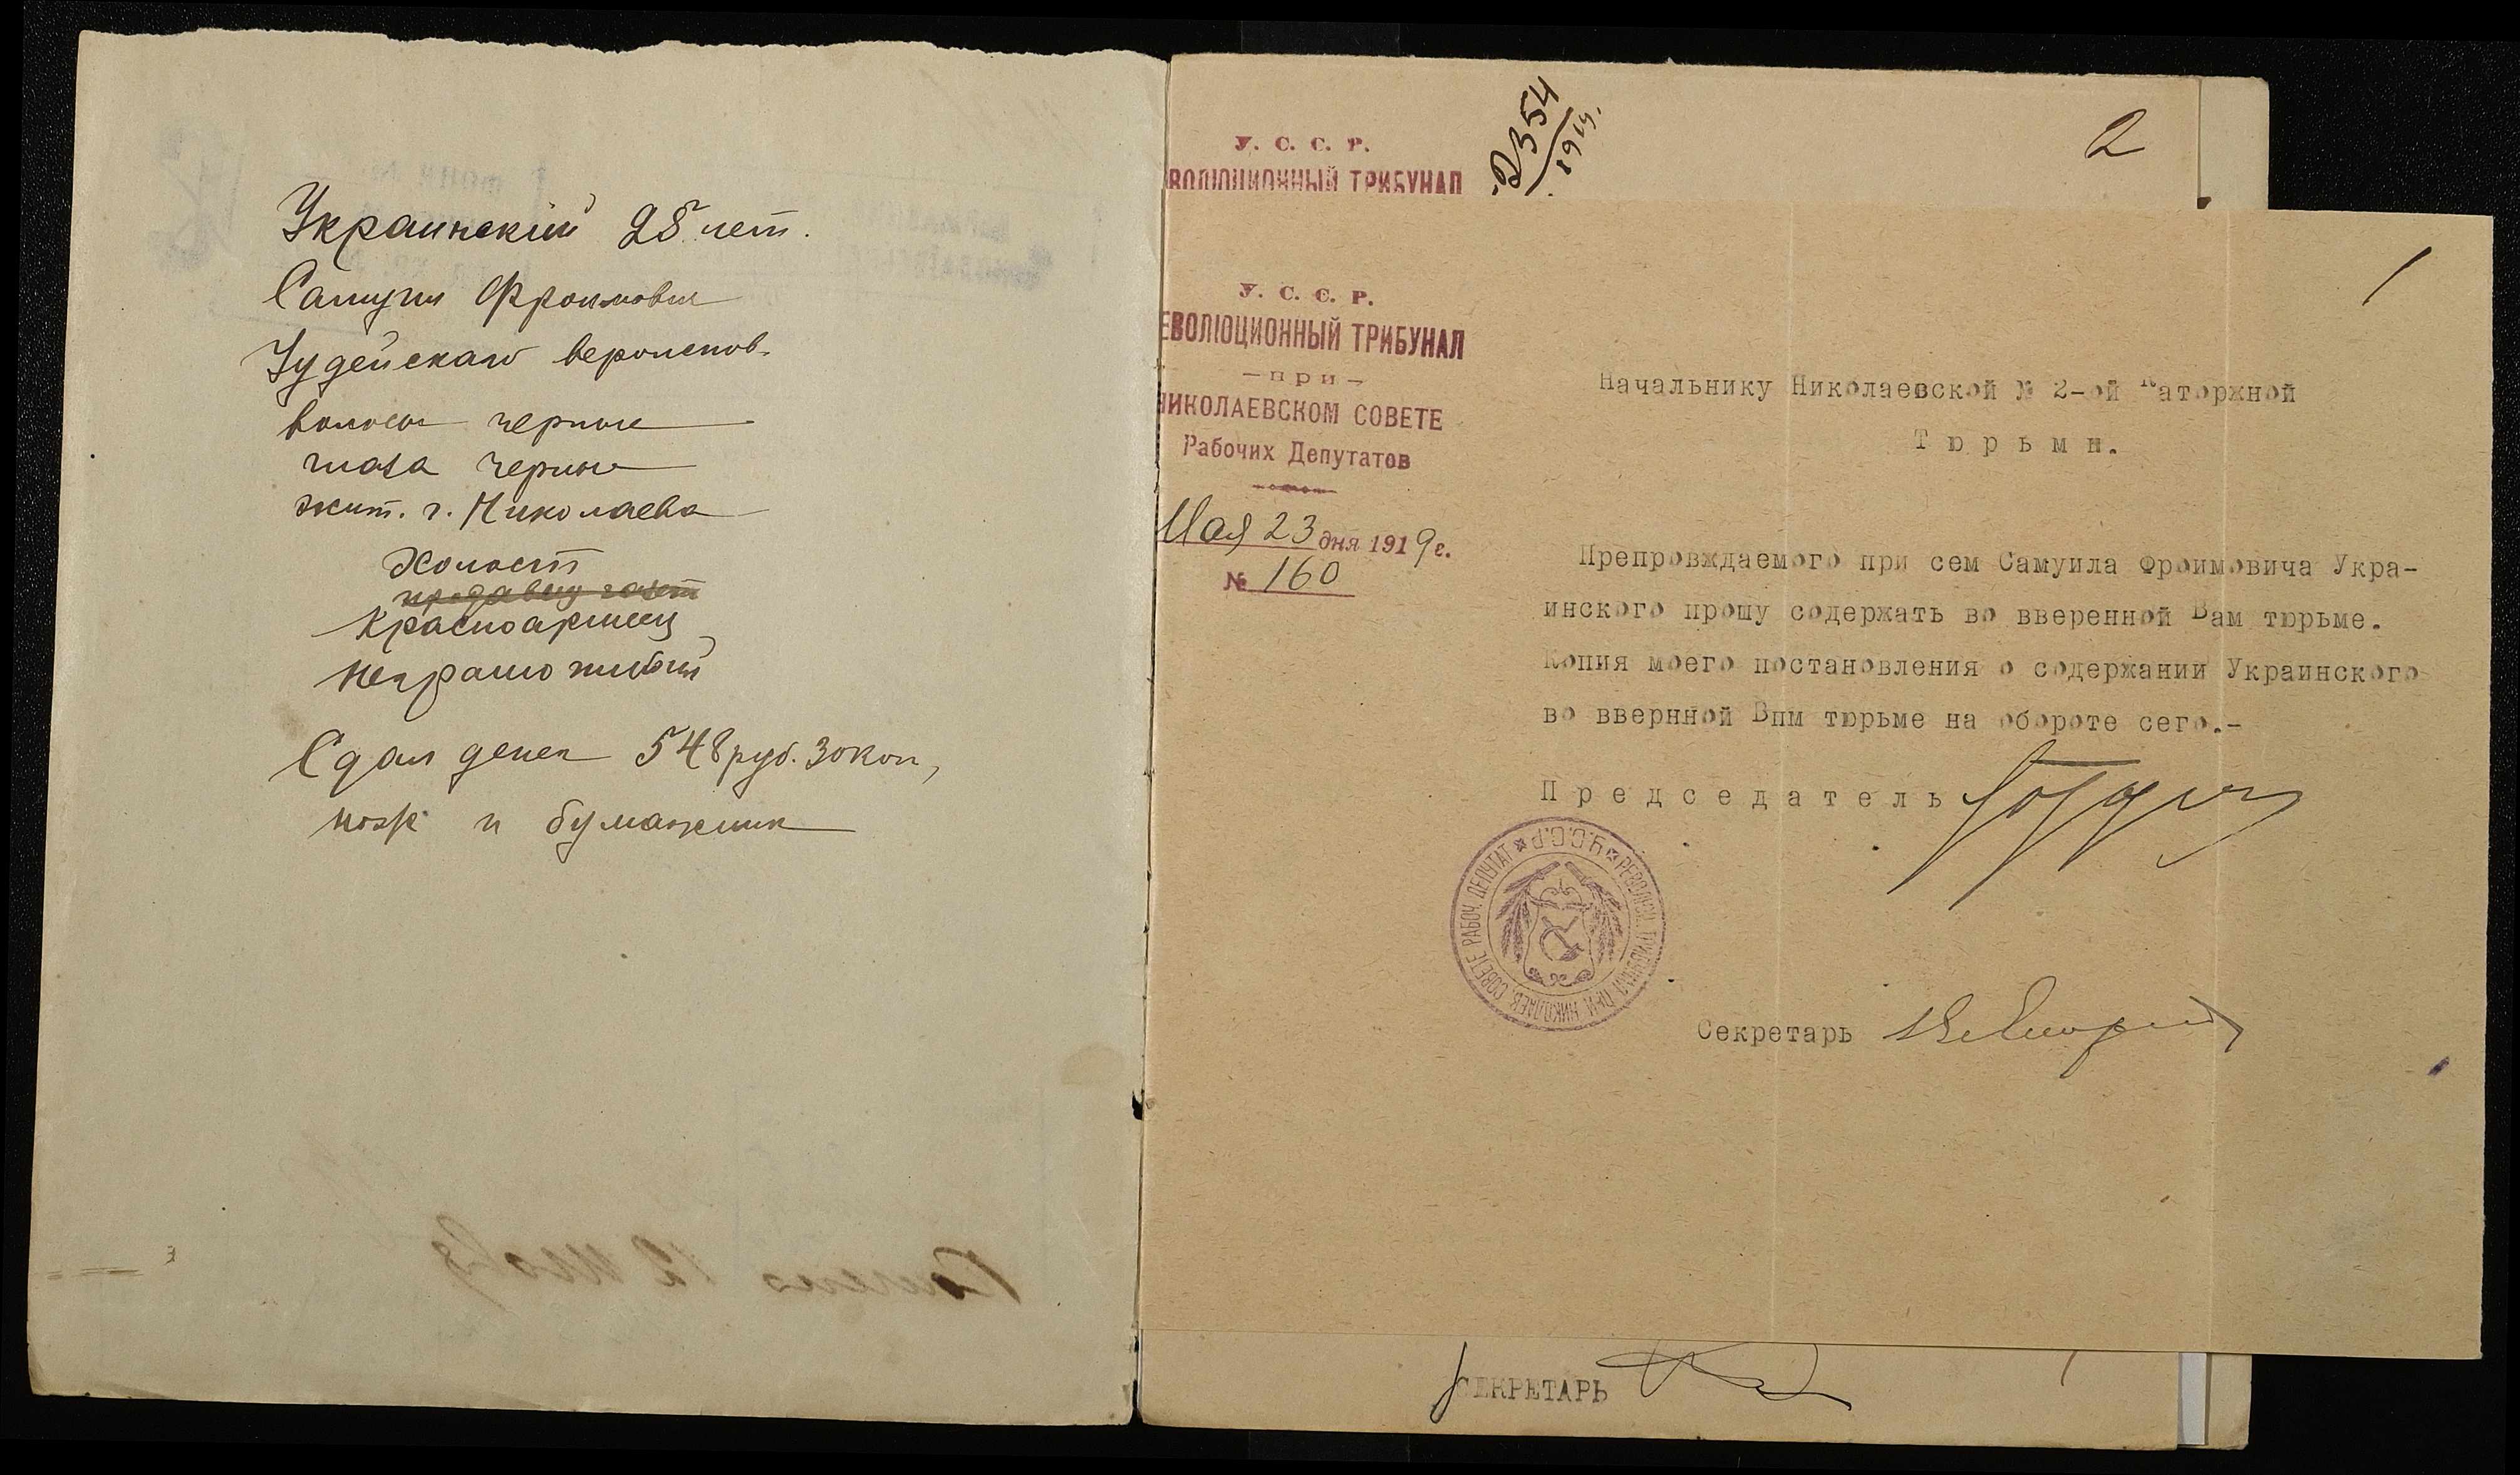 Украинскій 28 лет.
Самуил Фроимович
Іудейскаго вероиспов.
волосы черные
глаза черные
жит. г. Николаева
Холост
продавец газет
Красноармеец
неграмотный
Сдал денег 548 руб. 30 коп,
нож и бумажник
2354
1919.
2
У. С. С. Р.
ВОЛЮЦИОННЫЙ ТРИБУНАЛ
1
У. С. С. Р.
ЕВОЛЮЦИОННЫЙ ТРИБУНАЛ
— при —
НИКОЛАЕВСКОМ СОВЕТЕ
Рабочих Депутатов
Мая 23 дня 1919 г.
№ 160
Начальнику Николаевской № 2-ой Каторжной
Тюрьмы.
Препровждаемого при сем Самуила Фроимовича Укра-
инского прошу содержать во вверенной Вам тюрьме.
Копия моего постановления о содержании Украинского
во ввернной Впм тюрьме на обороте сего.-
Председатель
У.С.С.Р. ✻ РЕВОЛЮЦ. ТРИБУНАЛ ПРИ НИКОЛАЕВ. СОВЕТЕ РАБОЧ. ДЕПУТАТ ✻
Секретарь
СЕКРЕТАРЬ